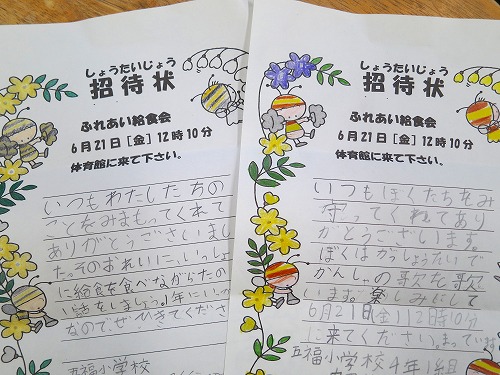 しょうたいじょう
招待状
ふれあい給食会
6月21日[金]12時10分
体育館に来て下さい。
いつもわたしたちの
ことをみまもってくれて
ありがとうございまし
た。そのおれいに、いっしょ
に給食を食べながらたの
い話をしましょう。1年にいっ
なので、ぜひきてくださ
五福小学校
しょうたいじょう
招待状
ふれあい給食会
6月21日[金]12時10分
体育館に来て下さい。
いつもぼくたちをみ
守ってくれてあり
がとうございます。
ぼくはがっしょうたいで
かんしゃの歌を歌
います。楽しみにして
6月21日(金)12時10分
に来てください。まっていま
五福小学校4年1組